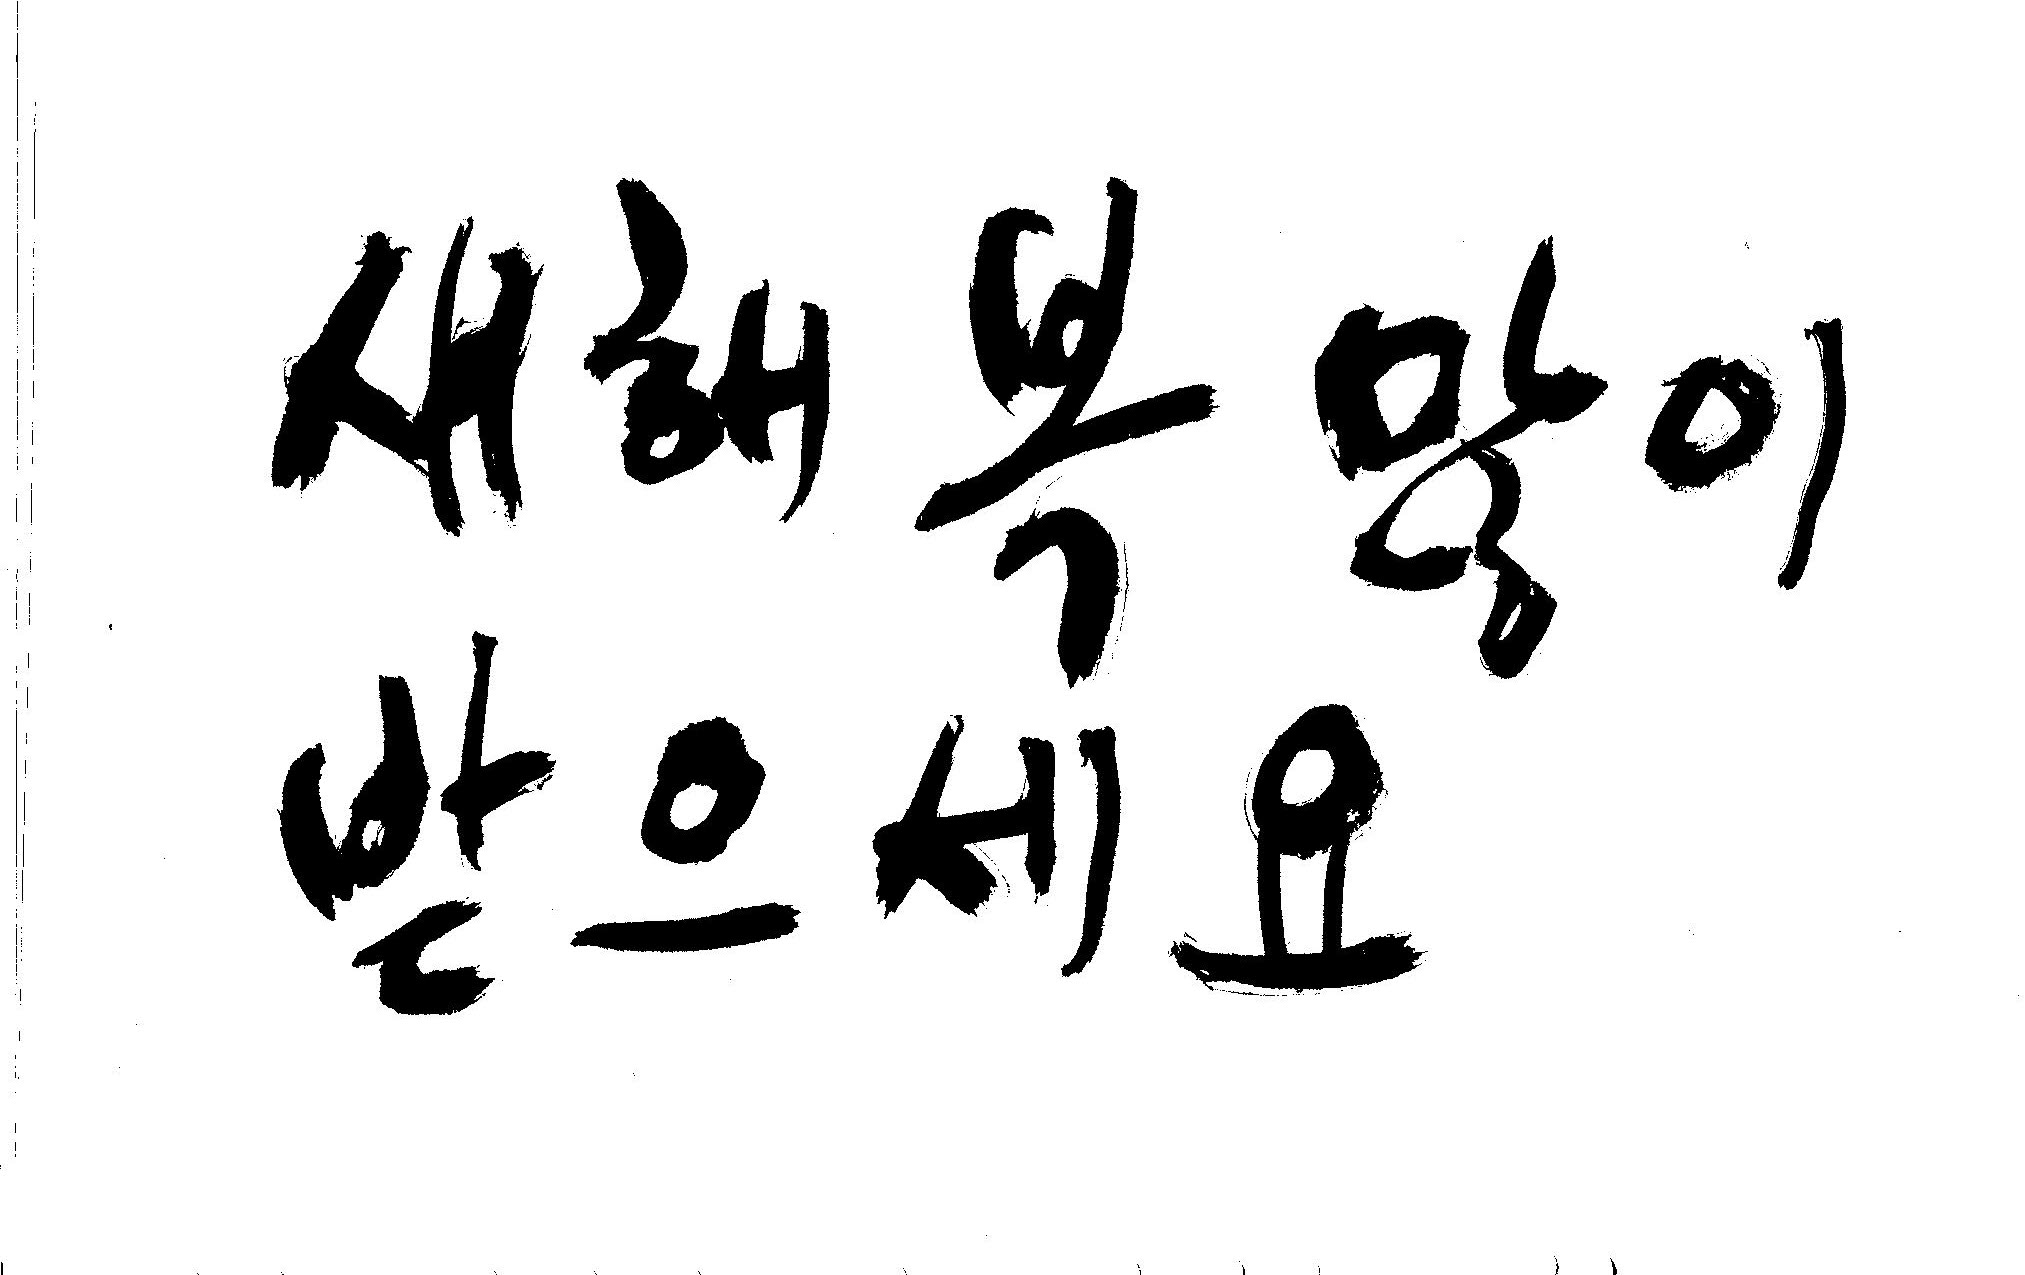 새해 복 많이
받으세요